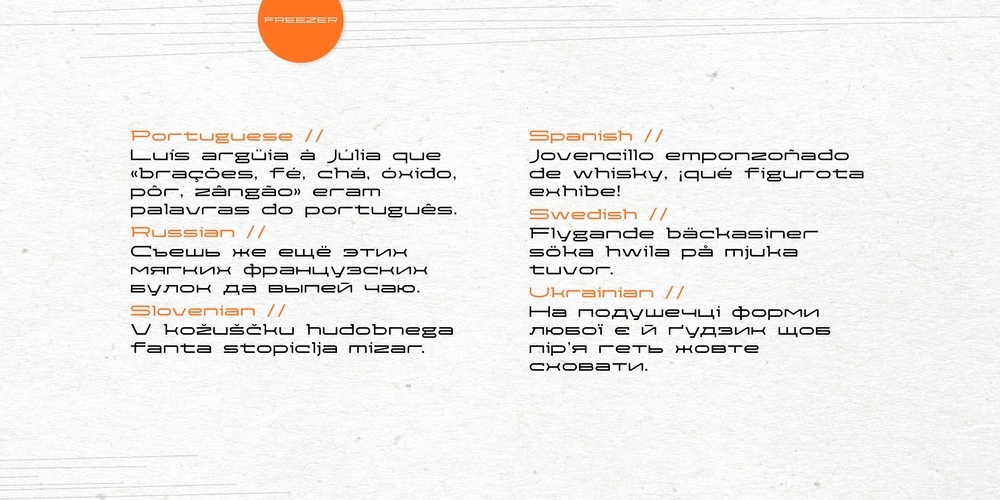 FREEZER
Portuguese //
Luís argüia à Júlia que
«brações, fé, chá, óxido,
pôr, zângão» eram
palavras do português.
Russian //
Съешь же ещё этих
мягких французских
булок да выпей чаю.
Slovenian //
V kožuščku hudobnega
fanta stopiclja mizar.
Spanish //
Jovencillo emponzoñado
de whisky, ¡qué figurota
exhibe!
Swedish //
Flygande bäckasiner
söka hwila på mjuka
tuvor.
Ukrainian //
На подушечці форми
любої є й ґудзик щоб
пір'я геть жовте
сховати.